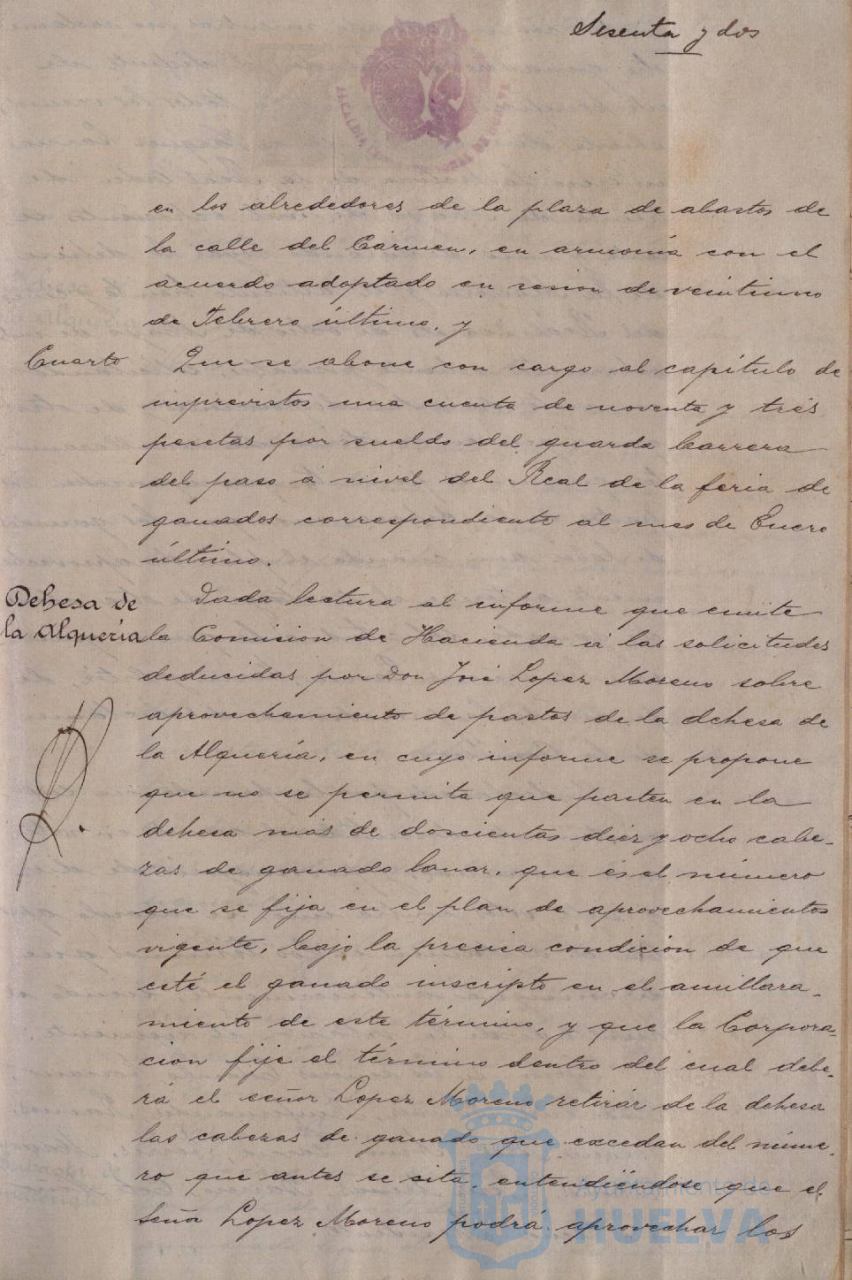 Sesenta y dos
en los alrededores de la plaza de abastos de
la calle del Cármen, en armonía con el
acuerdo adoptado en sesion de veintiuno
de Febrero último, y
Cuarto Que se abone con cargo al capítulo de
imprevistos una cuenta de noventa y tres
pesetas por sueldo del guarda barrera
del paso á nivel del Real de la feria de
ganados correspondiente al mes de Enero
último.
Dehesa de
la Alquería
Dada lectura al informe que emite
la Comision de Hacienda á las solicitudes
deducidas por Don José Lopez Moreno sobre
aprovechamiento de pastos de la dehesa de
la Alquería, en cuyo informe se propone
que no se permita que pasten en la
dehesa más de doscientas diez y ocho cabe-
zas de ganado lanar, que és el número
que se fija en el plan de aprovechamientos
vigente, bajo la precisa condicion de que
esté el ganado inscripto en el amillara-
miento de este término, y que la Corpora-
cion fije el término dentro del cual debe-
rá el señor Lopez Moreno retirar de la dehesa
las cabezas de ganado que excedan del núme-
ro que antes se cita, entendiéndose que el
señor Lopez Moreno podrá aprovechar los
Ayuntamiento de
HUELVA